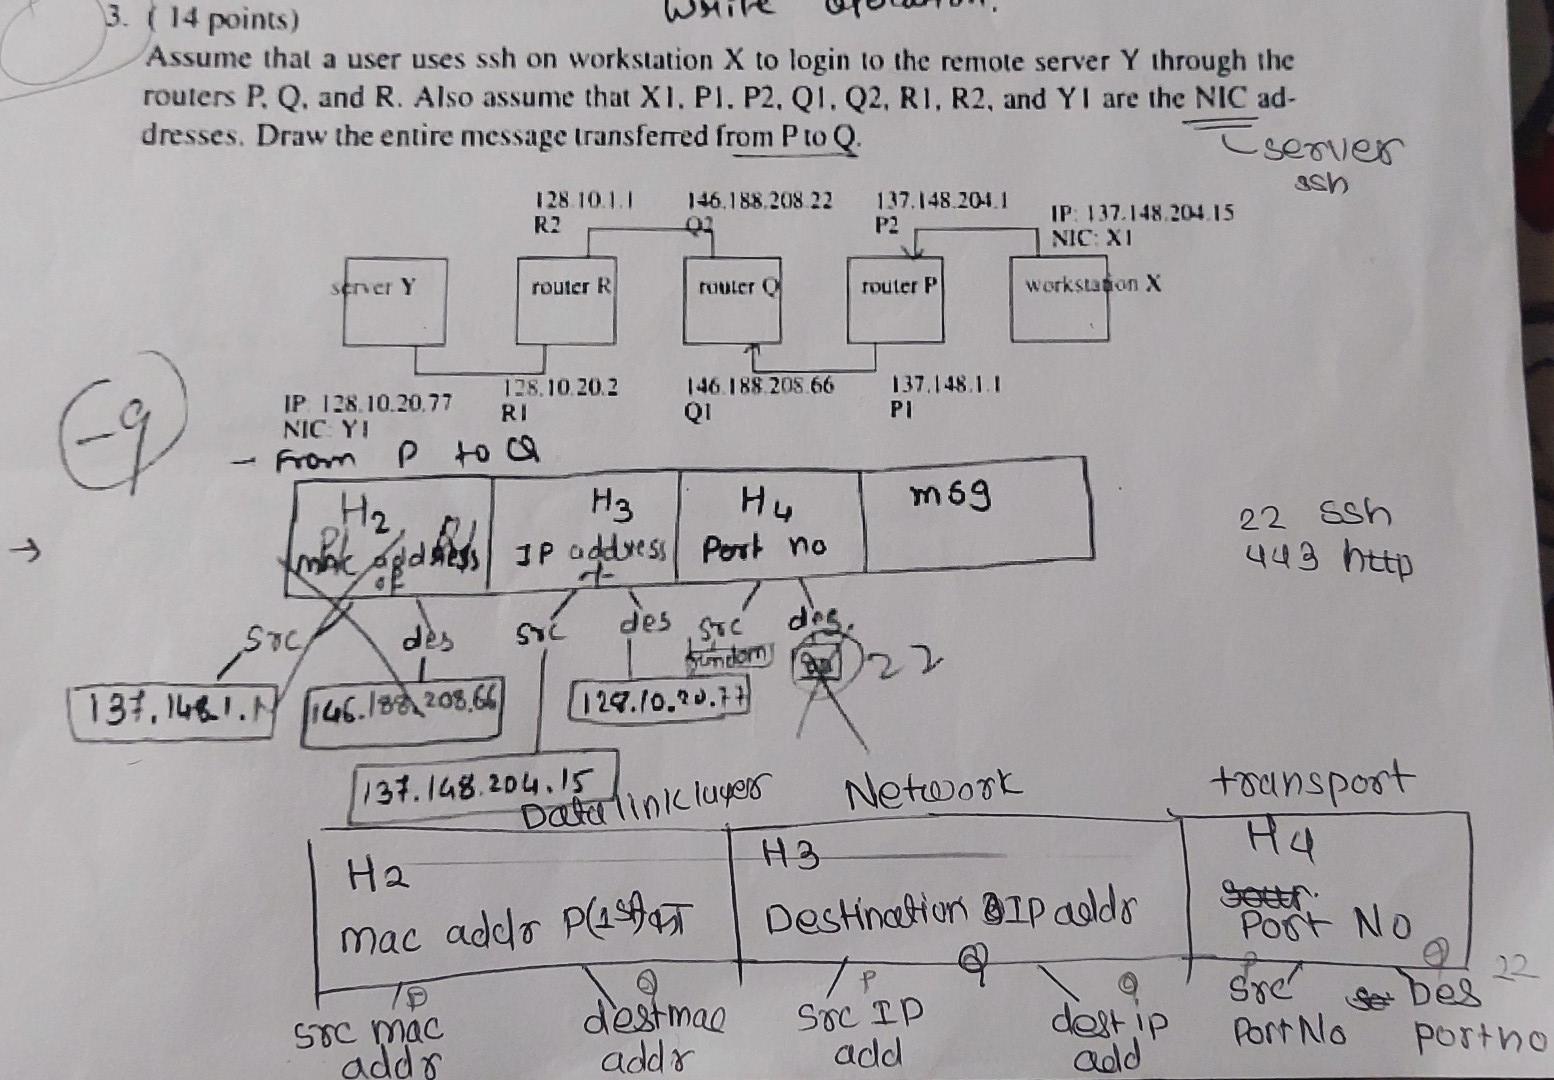 Write operation.
3. ( 14 points)
Assume that a user uses ssh on workstation X to login to the remote server Y through the
routers P, Q, and R. Also assume that X1, P1, P2, Q1, Q2, R1, R2, and Y1 are the NIC ad-
dresses. Draw the entire message transferred from P to Q.
server
ssh
128.10.1.1 146.188.208.22 137.148.204.1 IP: 137.148.204.15
R2 Q2 P2 NIC: X1
server Y router R router Q router P workstation X
IP: 128.10.20.77 128.10.20.2 146.188.208.66 137.148.1.1
NIC: Y1 R1 Q1 P1
-9
- From P to Q
H2 H3 H4 msg
mac address IP address Port no
of
22 ssh
443 http
src des src des src des.
random 22
137.148.1.1 146.188.208.66 128.10.20.77
137.148.204.15
Data link layer Network transport
H2 H3 H4
mac addr P(1st) Destination IP addr Port No
P Q P Q Q P Q 22
src mac addr dest mac addr src IP add dest ip add src Port No Des port no